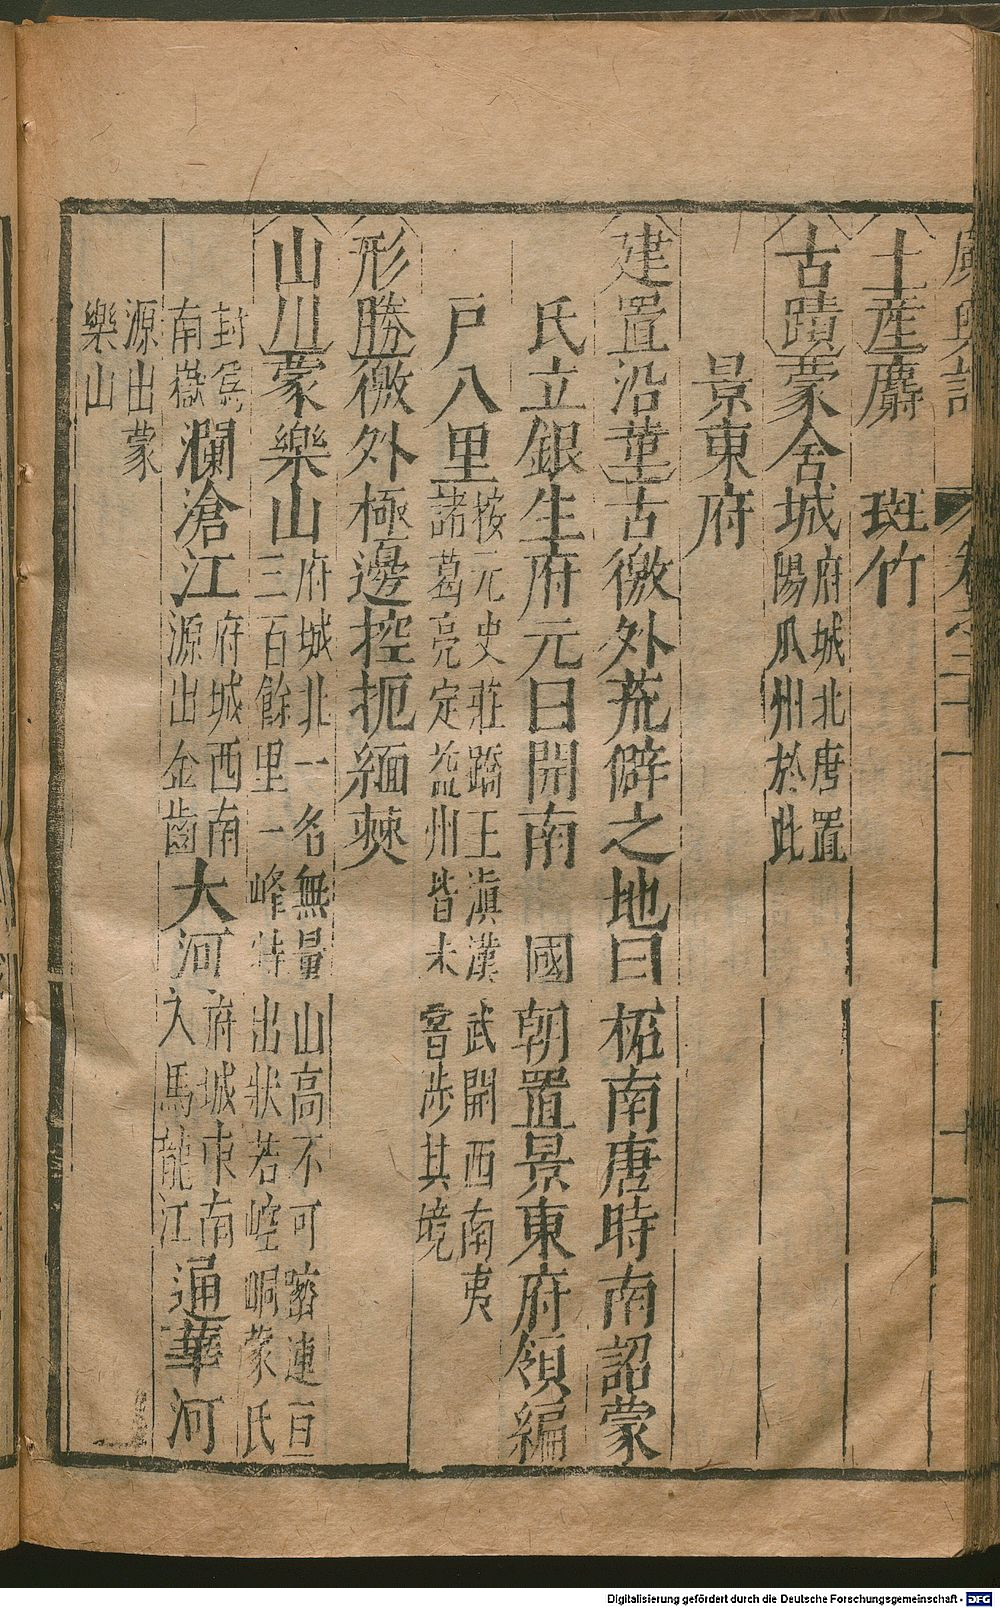 廣輿記 卷之二十一 十一
土産麝 斑竹
古蹟蒙舍城府城北唐置陽瓜州於此
景東府
建置沿革古徼外荒僻之地曰柘南唐時南詔蒙
氏立銀生府元曰開南 國朝置景東府領編
戶八里按元史莊蹻王滇漢武開西南夷諸葛亮定益州皆未嘗涉其境
形勝徼外極邊控扼緬僰
山川蒙樂山府城北一名無量山高不可躋連亘三百餘里一峰特出狀若崆峒蒙氏
封爲南嶽瀾滄江府城西南源出金齒大河府城東南入馬龍江通華河
源出蒙樂山
Digitalisierung gefördert durch die Deutsche Forschungsgemeinschaft - DFG